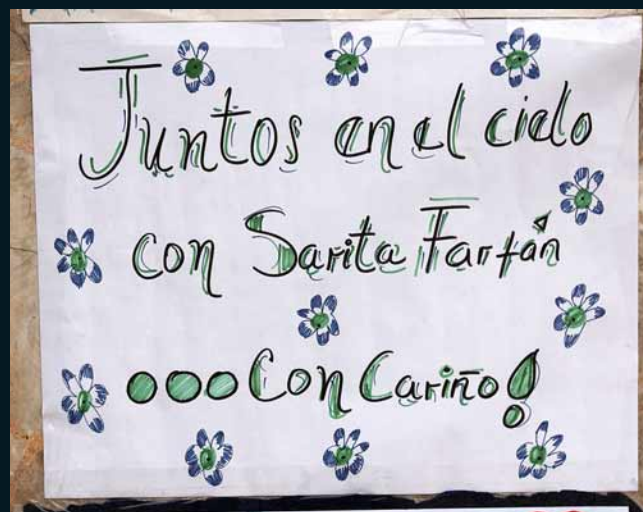 Juntos en el cielo
con Sarita Farfán
...Con Cariño!